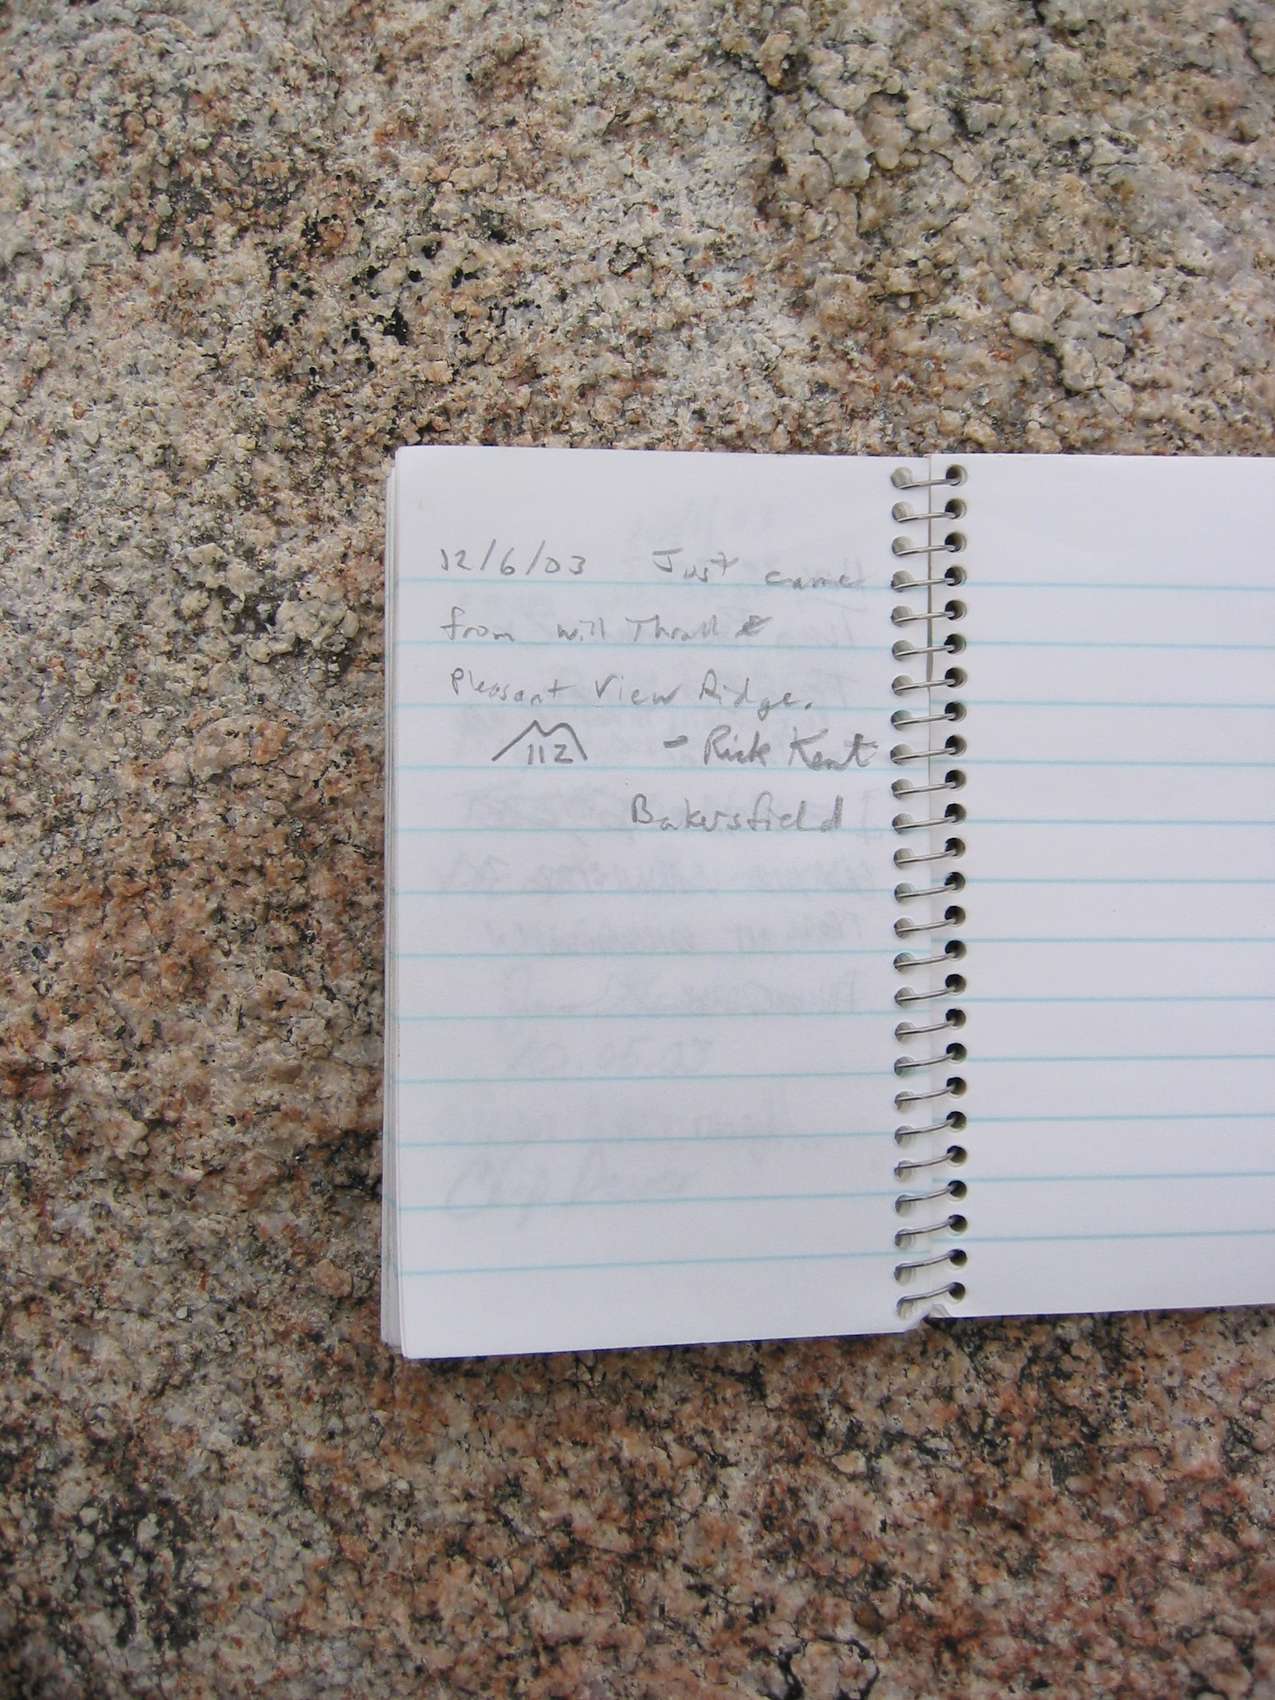 12/6/03 Just came
from Will Thrall &
Pleasant View Ridge.
112 - Rick Kent
Bakersfield